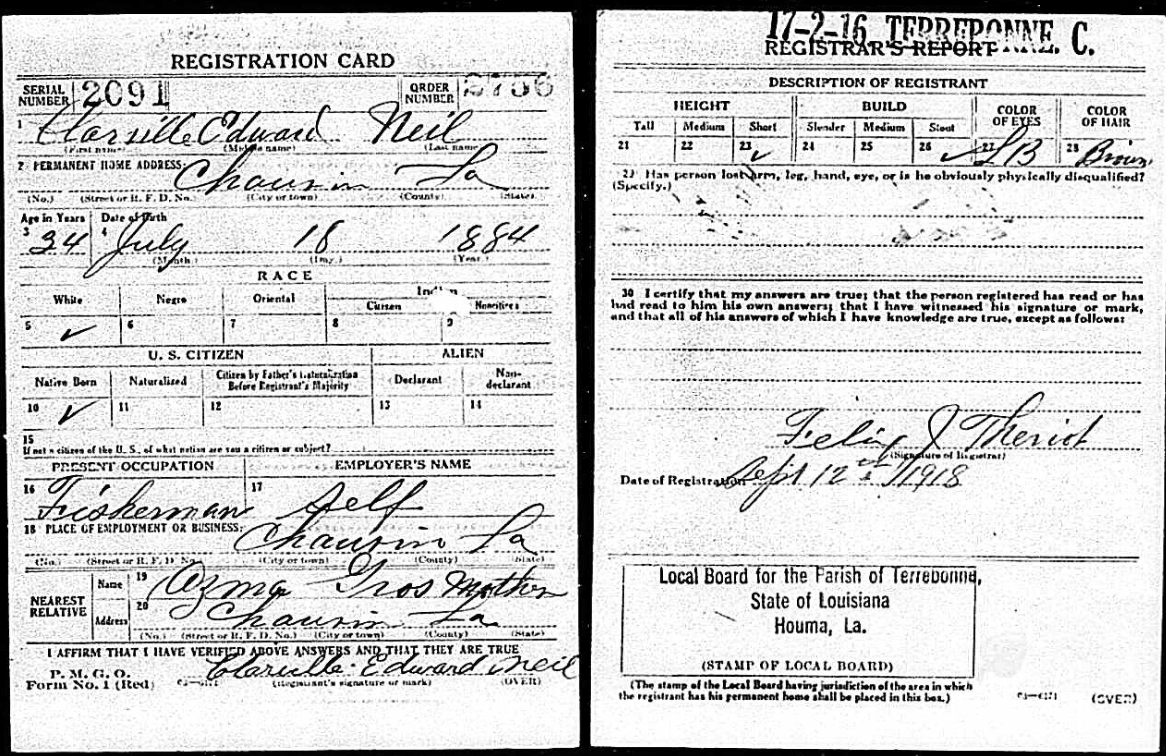 REGISTRATION CARD
SERIAL NUMBER 2091 ORDER NUMBER 2756
1 Clarville Edward Neil
(First name) (Middle name) (Last name)
2 PERMANENT HOME ADDRESS: Chauvin La
(No.) (Street or R. F. D. No.) (City or town) (County) (State)
Age in Years Date of Birth
3 34 4 July 18 1884
(Month.) (Day.) (Year.)
RACE
White Negro Oriental Indian
Citizen Noncitizen
5 ✓ 6 7 8 9
U. S. CITIZEN ALIEN
Native Born Naturalized Citizen by Father's Naturalization Before Registrant's Majority Declarant Non-declarant
10 ✓ 11 12 13 14
15
If not a citizen of the U. S., of what nation are you a citizen or subject?
PRESENT OCCUPATION EMPLOYER'S NAME
16 Fisherman 17 Self
18 PLACE OF EMPLOYMENT OR BUSINESS: Chauvin La
(No.) (Street or R. F. D. No.) (City or town) (County) (State)
NEAREST RELATIVE Name 19 Ozma Gros Mother
Address 20 Chauvin La
(No.) (Street or R. F. D. No.) (City or town) (County) (State)
I AFFIRM THAT I HAVE VERIFIED ABOVE ANSWERS AND THAT THEY ARE TRUE
P. M. G. O.
Form No. 1 (Red) Clarville Edward Neil
(Registrant's signature or mark) (OVER)
17-2-16 TERREBONNE. C.
REGISTRAR'S REPORT
DESCRIPTION OF REGISTRANT
HEIGHT BUILD COLOR OF EYES COLOR OF HAIR
Tall Medium Short Slender Medium Stout
21 22 23 ✓ 24 25 26 ✓ 27 LB 28 Brown
29 Has person lost arm, leg, hand, eye, or is he obviously physically disqualified?
(Specify.)
30 I certify that my answers are true; that the person registered has read or has
had read to him his own answers; that I have witnessed his signature or mark,
and that all of his answers of which I have knowledge are true, except as follows:
Felix J Theriot
(Signature of Registrar)
Date of Registration Sept 12 1918
Local Board for the Parish of Terrebonne,
State of Louisiana
Houma, La.
(STAMP OF LOCAL BOARD)
(The stamp of the Local Board having jurisdiction of the area in which
the registrant has his permanent home shall be placed in this box.)
(OVER)